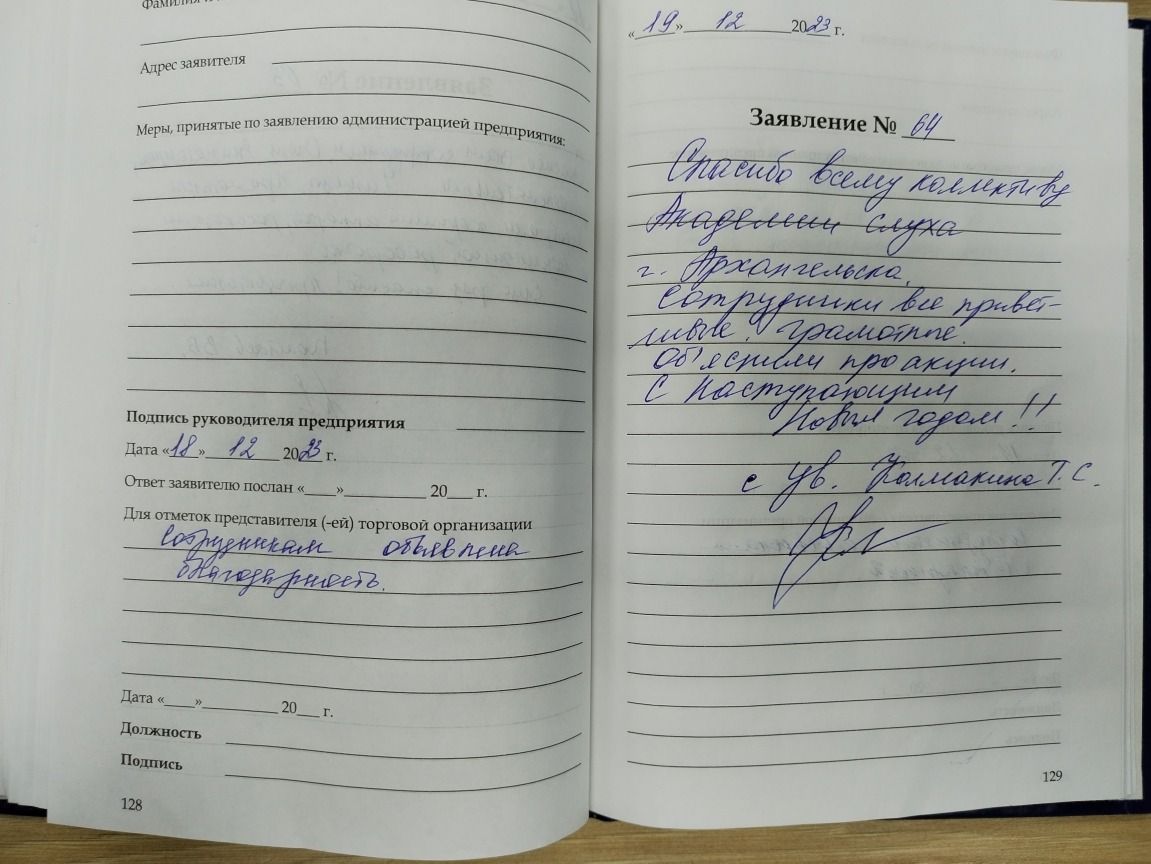 Фамилия
Адрес заявителя
Меры, принятые по заявлению администрацией предприятия:
Подпись руководителя предприятия
Дата «18» 12 2023 г.
Ответ заявителю послан «____»____________ 20___ г.
Для отметок представителя (-ей) торговой организации
Сотрудникам объявлена
благодарность.
Дата «____»___________ 20___ г.
Должность
Подпись
128
«19» 12 2023 г.
Заявление № 64
Спасибо всему коллективу
Академии слуха
г. Архангельска.
Сотрудники все привет-
ливые, грамотные.
Объяснили про акции.
С Наступающим
Новым годом!!
с Ув. Колмакина Т.С.
129